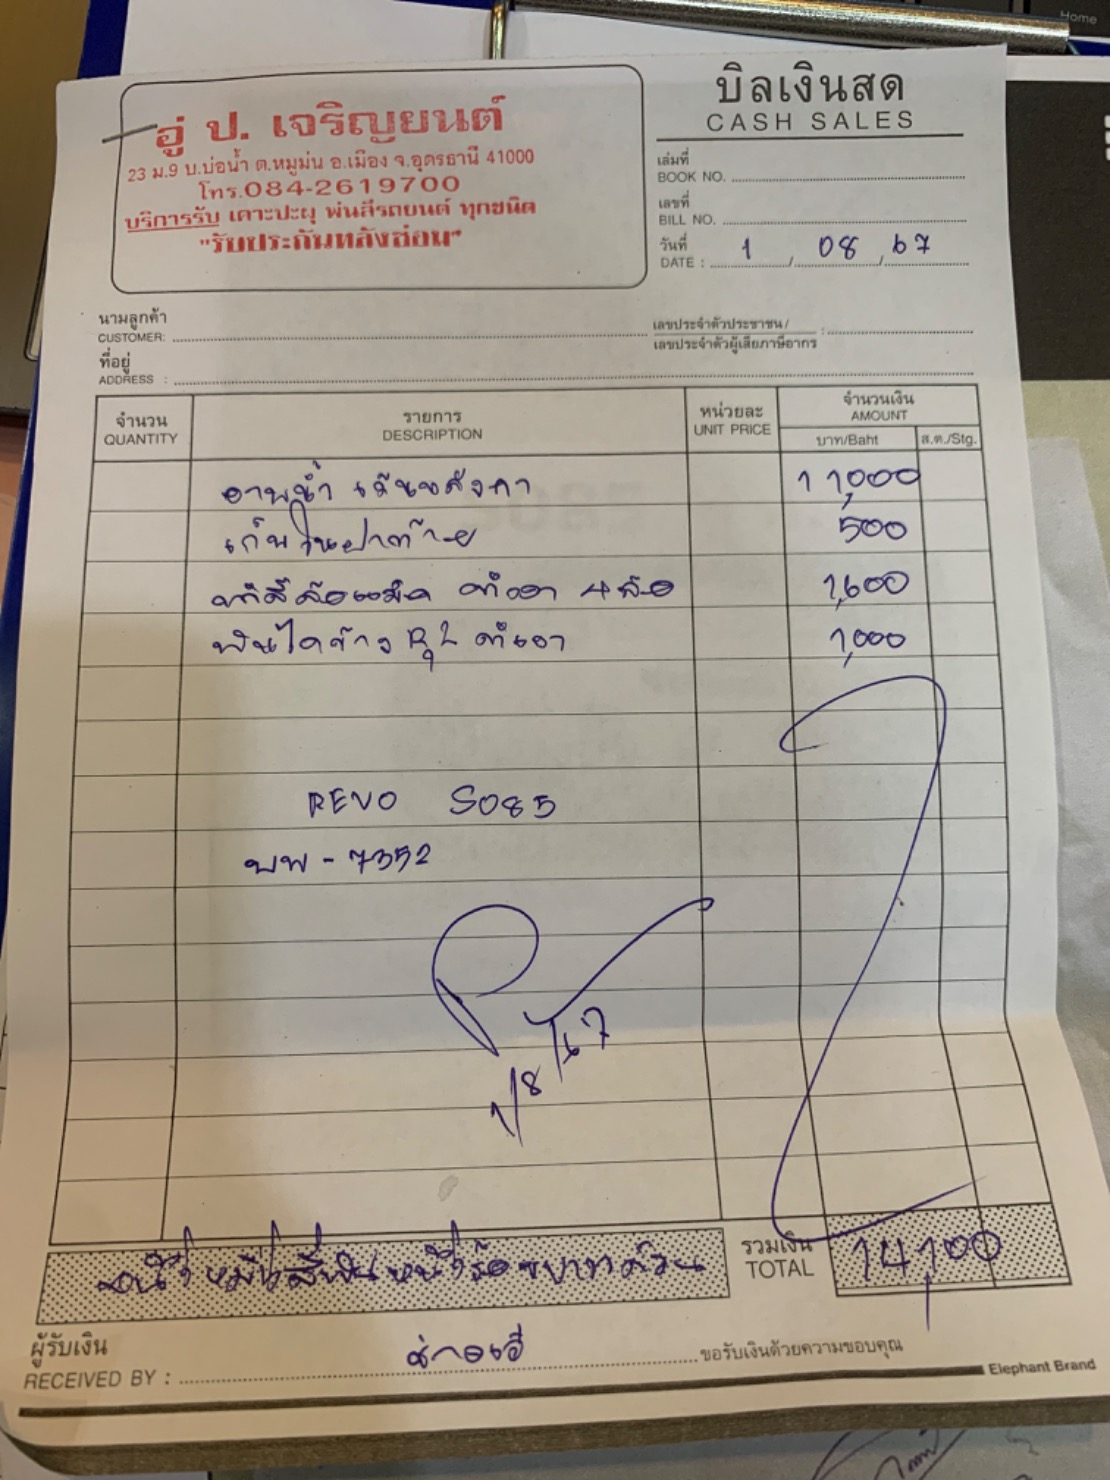 อู่ ป. เจริญยนต์
23 ม.9 บ.บ่อน้ำ ต.หมูม่น อ.เมือง จ.อุดรธานี 41000
โทร.084-2619700
บริการรับ เคาะปะผุ พ่นสีรถยนต์ ทุกชนิด
"รับประกันหลังซ่อม"
บิลเงินสด
CASH SALES
เล่มที่
BOOK NO.
เลขที่
BILL NO.
วันที่
DATE : 1 / 08 / 67
นามลูกค้า
CUSTOMER:
เลขประจำตัวประชาชน/
เลขประจำตัวผู้เสียภาษีอากร :
ที่อยู่
ADDRESS :
จำนวน QUANTITY รายการ DESCRIPTION หน่วยละ UNIT PRICE จำนวนเงิน AMOUNT
บาท/Baht ส.ต./Stg.
อาบน้ำ เว้นหลังคา 11,000
เก็บในฝาท้าย 500
ทำสีล้อแม็ค ดำเงา 4 ล้อ 1,600
บันไดข้าง R,L ดำเงา 1,000
REVO S085
บพ - 7352
1/8/67
หนึ่งหมื่นสี่พันหนึ่งร้อยบาทถ้วน
รวมเงิน
TOTAL 14,100
ผู้รับเงิน
RECEIVED BY : ขอรับเงินด้วยความขอบคุณ
Elephant Brand
Home